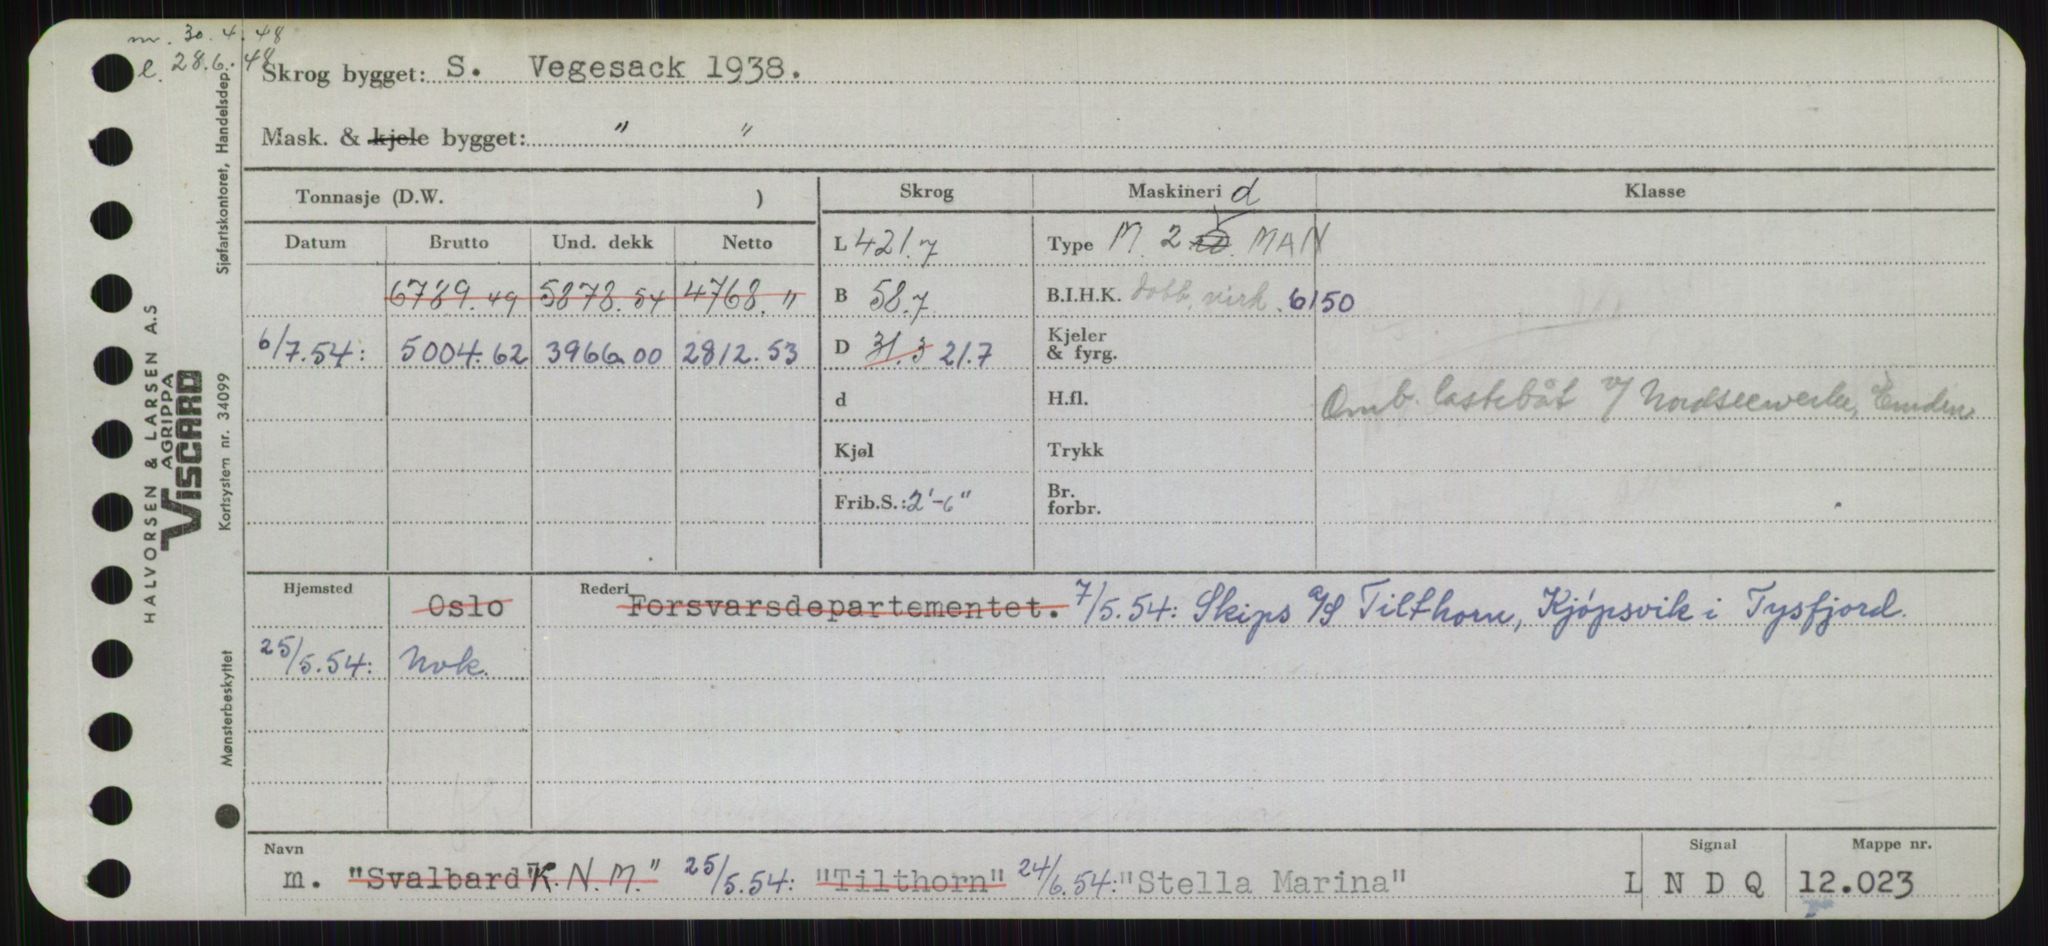 m. 30.4.48
l. 28.6.48
Skrog bygget: S. Vegesack 1938.
Mask. & kjele bygget: " "
Tonnasje (D.W. )
Skrog
Maskineri d
Klasse
Datum Brutto Und. dekk Netto
L 421.7
Type M. 2 MAN
6789.49 5878.54 4768. "
B 58.7
B.I.H.K. dobb. virk. 6150
6/7.54: 5004.62 3966.00 2812.53
D 31.3 21.7
Kjeler
& fyrg.
d
H.fl.
Omb. lastebåt v/ Nordseewerke, Emden
Kjøl
Trykk
Frib.S.: 2'-6"
Br.
forbr.
Hjemsted Oslo
Rederi Forsvarsdepartementet. 7/5.54: Skips A/S Tilthorn, Kjøpsvik i Tysfjord.
25/5.54: Nvk.
Navn
Signal
Mappe nr.
m. "Svalbard" K.N.M." 25/5.54: "Tilthorn" 24/6.54: "Stella Marina"
L N D Q
12.023
Sjøfartskontoret, Handelsdep.
Kortsystem nr. 34099
Mønsterbeskyttet
HALVORSEN & LARSEN A.S
AGRIPPA
VISCARD